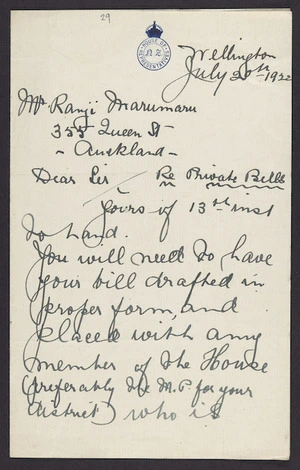 29
HOUSE OF
N.Z.
REPRESENTATIVES
Wellington
July 20th 1922
Mr Ranji Marumaru
355 Queen St
- Auckland -
Dear Sir Re Private Bills
Yours of 13th inst
to hand.
You will need to have
your bill drafted in
proper form, and
placed with any
member of the House
(preferably the M.P. for your
district) who is